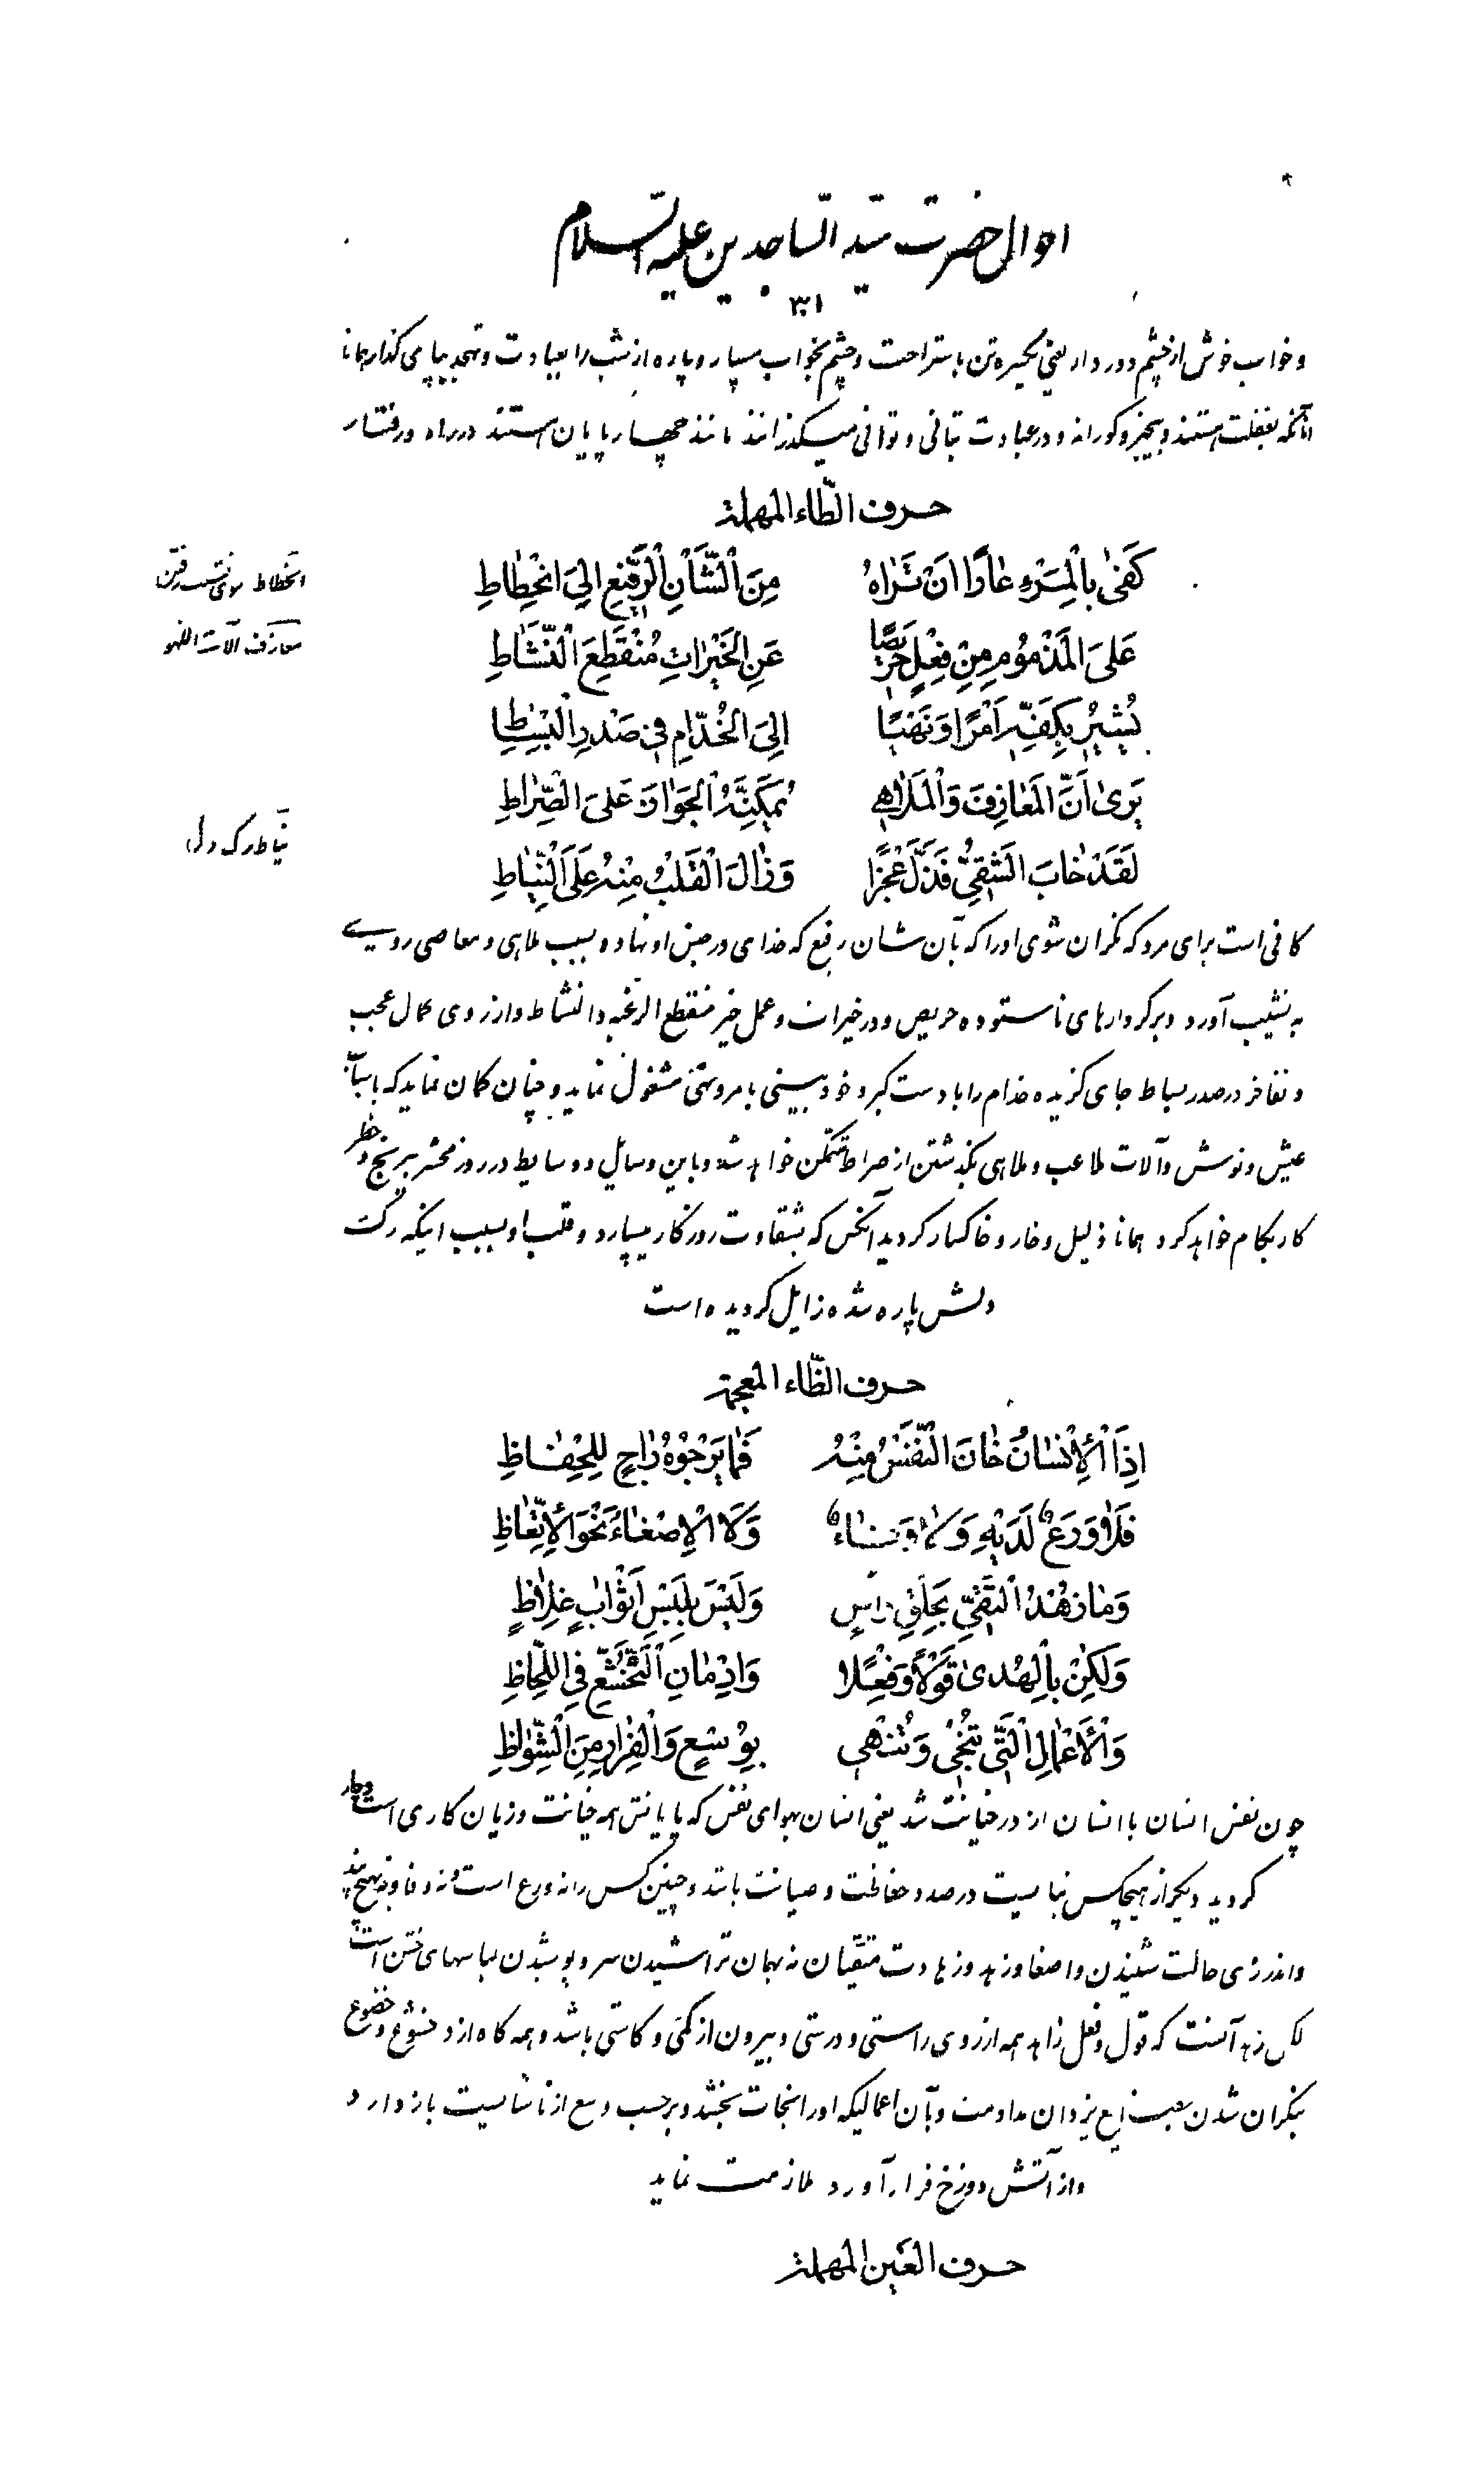 احوال حضرت سیّد السّاجدین علیه السّلام
۳۱
و خواب خوش از چشم دور دار یعنی یکسره تن باستراحت و چشم بخواب مسپار و پاره از شب را بعبادت و تهجد بپا می گذار همانا
آنانکه بغفلت هستند و بیخبر و کورانه و در عبادت بتانی و توانی میگذرانند مانند چهارپایان هستند در راه و رفتار
حرف الطّاء المهملة
كَفىٰ بِالْمَرْءِ عٰارًا اَنْ تَرٰاهُ مِنَ الْشَّأْنِ الْرَّفِيْعِ اِلىَ انْحِطٰاطِ
انحطاط سوی نشیب رفتن
عَلىَ الْمَذْمُوْمِ مِنْ فِعْلٍ حَرِيْصًا عَنِ الْخَيْرٰاتِ مُنْقَطِعَ الْنَّشٰاطِ
معازف آلات اللهو
يُشِيْرُ بِكَفِّهِ اَمْرًا وَنَهْيًا اِلىَ الْخُدّٰامِ فِى صَدْرِ الْبِسٰاطِ
يَرىٰ اَنَّ الْمَعٰازِفَ وَالْمَلٰاهِى تُمَكِّنُهُ الْجَوٰازَ عَلىَ الْصِّرٰاطِ
لَقَدْ خٰابَ الْشَقِىُّ فَذَلَّ عَجْزًا وَزٰالَ الْقَلْبُ مِنْهُ عَلَى الْنِّيٰاطِ
نیاط رک دل
کافی است برای مرد که نگران شوی او را که بآن شان رفیع که خدای در جنس او نهاده بسبب ملاهی و معاصی روی
به نشیب آورد و بر کردارهای ناستوده حریص و در خیرات و عمل خیر منقطع الرغبه و النشاط و از روی کمال عجب
و تفاخر در صدر بساط جای گزیده خدام را با دست کبر و خودبینی بامر و نهی مشغول نماید و چنان گمان نماید که باسباب
عیش و نوش و آلات ملاعب و ملاهی بگذشتن از صراط متمکن خواهد شد و باین وسایل و وسایط در روز محشر بی رنج و خطر
کار بکام خواهد کرد همانا ذلیل و خار و خاکسار گردید آنکس که بشقاوت روزگار میسپارد و قلب او بسبب اینکه رگ
دلش پاره شده زایل گردیده است
حرف الظّاء المعجمة
اِذَا الْاِنْسٰانُ خٰانَ الْنَّفْسُ مِنْهُ فَمٰا يَرْجُوْهُ رٰاجٍ لِلْحِفٰاظِ
فَلٰا وَرَعٌ لَدَيْهِ وَلٰا وَفٰاءٌ وَلَا الْاِصْغٰاءُ نَحْوَ الْاِتِّعٰاظِ
وَمٰا زُهْدُ الْتَّقِىِّ بِحَلْقِ رَأْسٍ وَلَيْسَ بِلُبْسِ اَثْوٰابٍ غِلٰاظٍ
وَلٰكِنْ بِالْهُدىٰ قَوْلًا وَفِعْلًا وَاِدْمٰانِ الْتَّخَشُّعِ فِى اللِّحٰاظِ
وَالْاَعْمٰالِ الَّتِى تُنْجِى وَتُنْهِى بِوُسْعٍ وَالْفِرٰارِ مِنَ الْشِّوٰاظِ
چون نفس انسان با انسان از در خیانت شد یعنی انسان بهوای نفس که پایانش همه خیانت و زیان کاری است دچار
گردید دیگر از هیچکس نبایست در صدد حفاظت و صیانت باشد و چنین کس را نه ورع است و نه وفا و نه بهیچ پند
و اندرزی حالت شنیدن و اصغا و زهد و زهادت متقیان نه بهمان تراشیدن سر و پوشیدن لباسهای خشن است
لکن زهد آنست که قول و فعل زاهد همه از روی راستی و درستی و بیرون از کمی و کاستی باشد و همه گاه از در خشوع و خضوع
بنگران شدن بصنایع یزدان مداومت و بآن اعمالیکه او را نجات بخشد و برحسب وسع از ناشایست باز دارد
و از آتش دوزخ فرار آورد ملازمت نماید
حرف العین المهملة